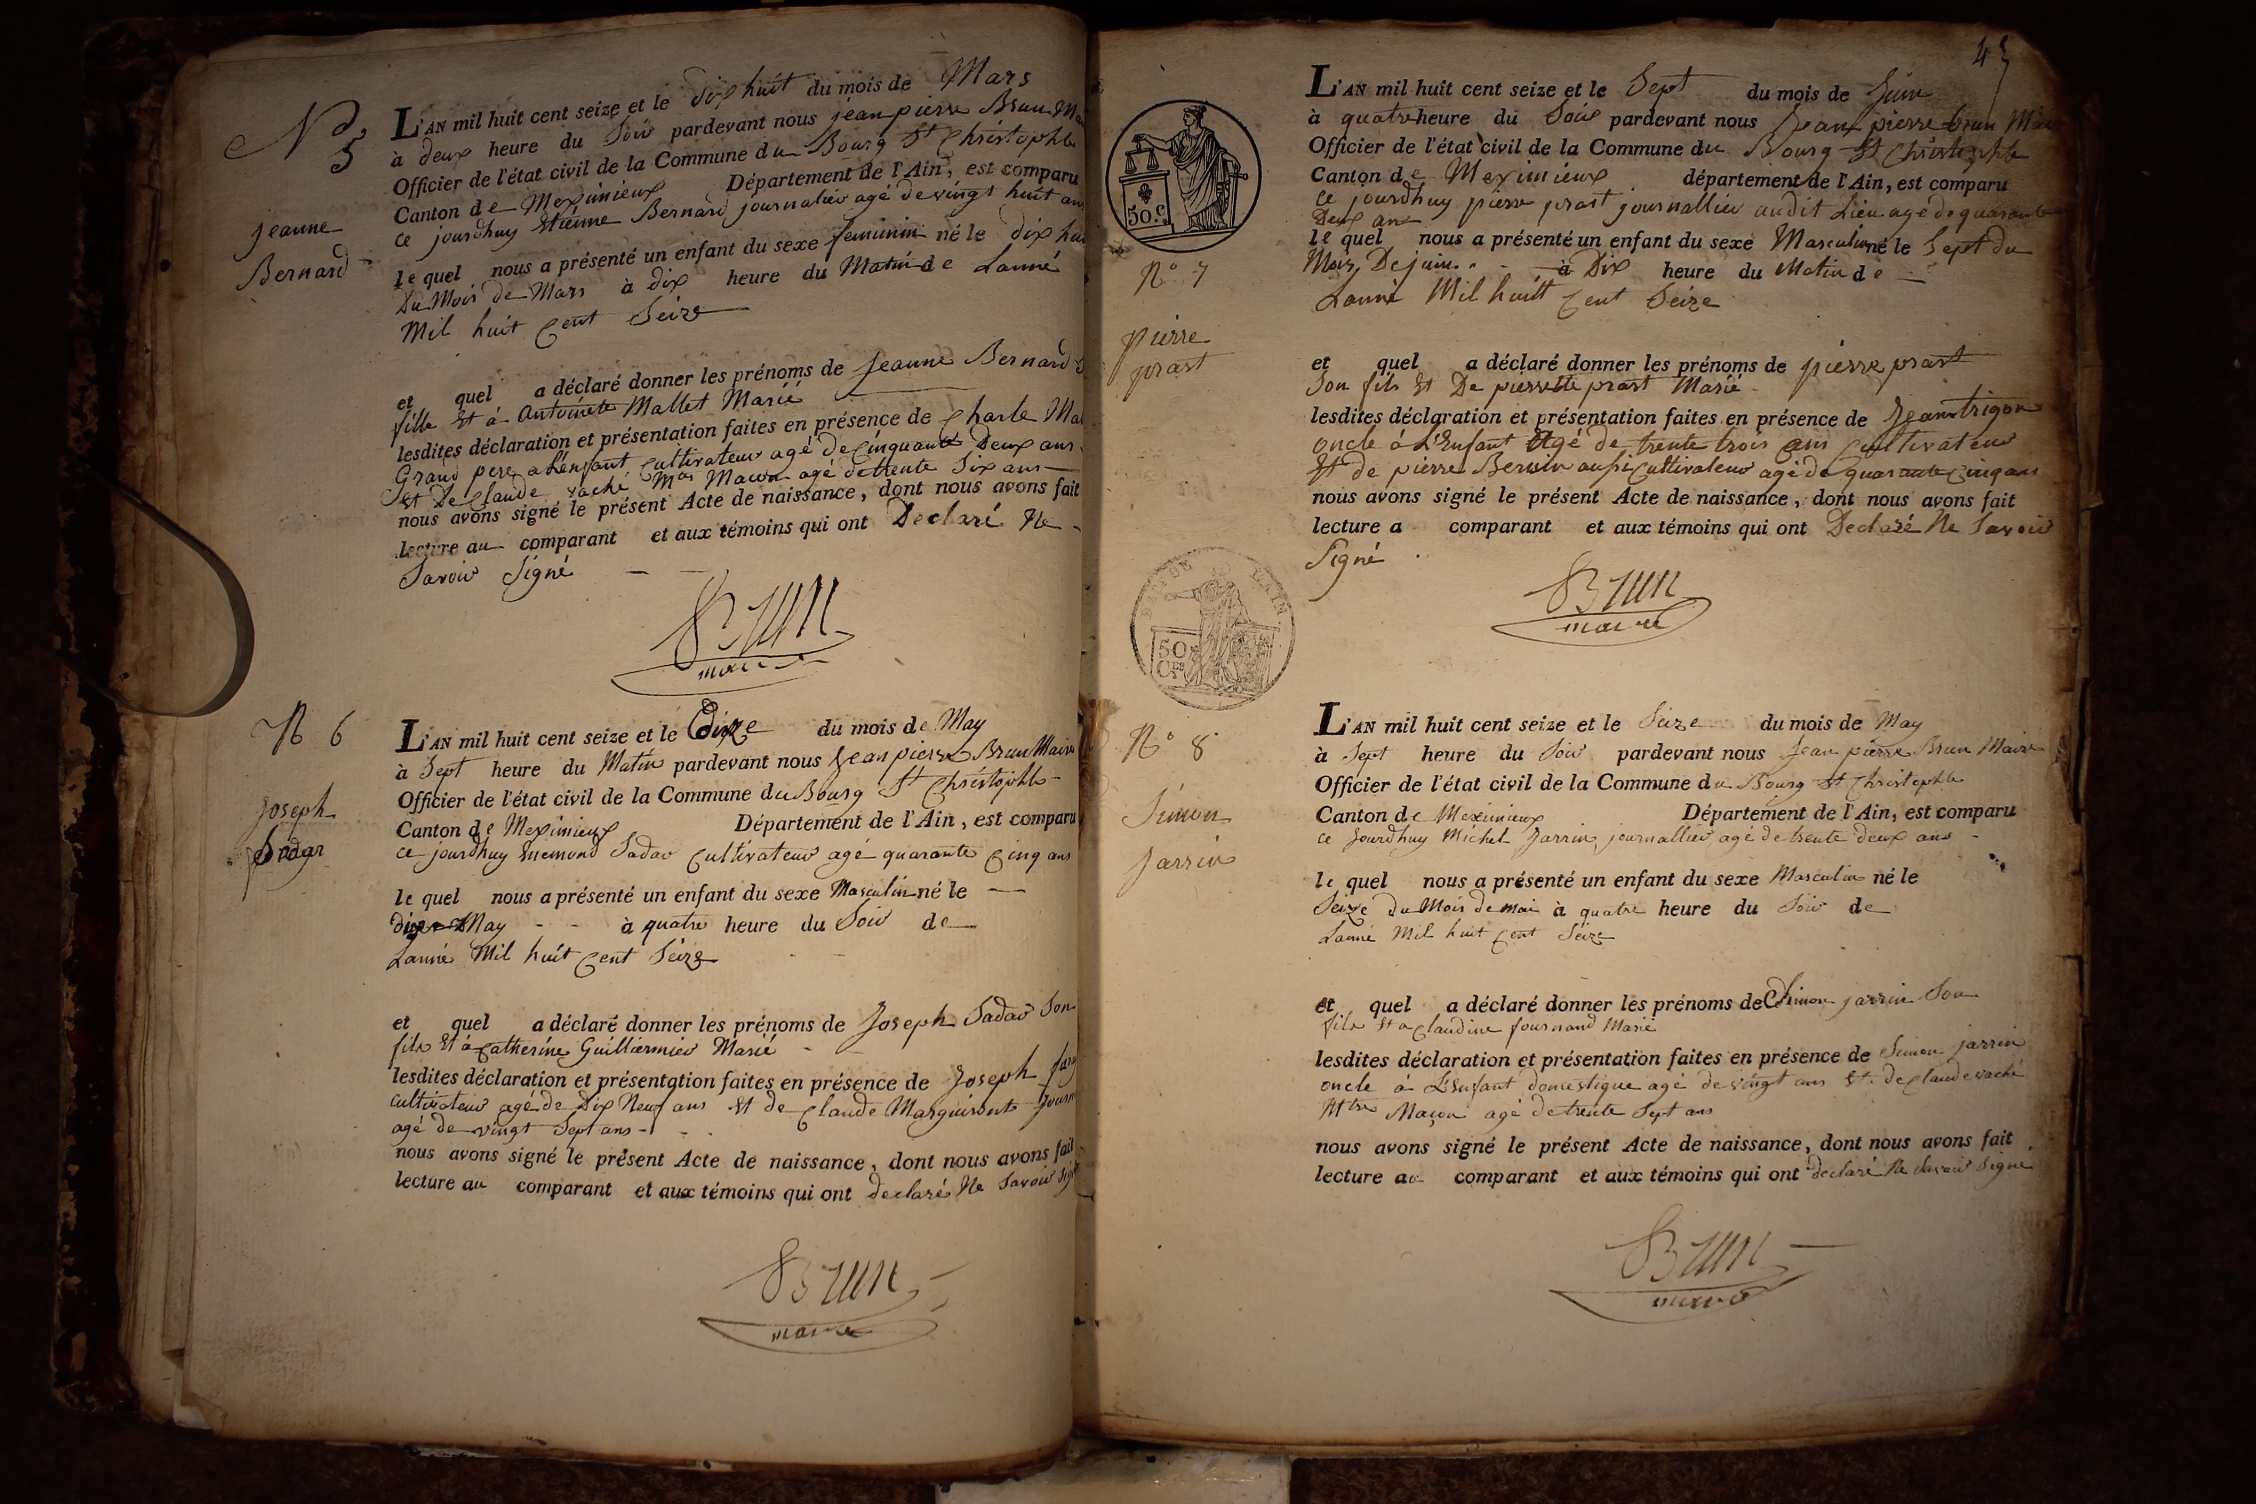 N° 5
jeanne
Bernard
L'AN mil huit cent seize et le dix huit du mois de Mars
à deux heure du Soir pardevant nous jean pierre Brun
Officier de l'état civil de la Commune du Bourg St Christophle
Canton de Meximieux Département de l'Ain, est comparu
ce jourdhuy Etienne Bernard journalier agé de vingt huit an
le quel nous a présenté un enfant du sexe feminin né le dix
Du Mois de Mars à dix heure du Matin de Lanné
Mil huit Cent Seize
et quel a déclaré donner les prénoms de Jeanne Bernard
fille Et à Antoinete Mallet Marié
lesdites déclaration et présentation faites en présence de Charle
Grand pere a Lenfant Cultivateur agé de Cinquante Deux ans
Et De Claude vaché Mtre Macon agé de trente Six ans
nous avons signé le présent Acte de naissance, dont nous avons fait
lecture au comparant et aux témoins qui ont Declaré Ne
Savoir Signé
Brun
maire
N 6
Joseph
Sadar
L'AN mil huit cent seize et le du mois de May
à Sept heure du Matin pardevant nous Jean pierre Brun Maire
Officier de l'état civil de la Commune du Bourg St Christophle
Canton de Meximieux Département de l'Ain, est comparu
ce jourdhuy Sadar Cultivateur agé quarante Cinq ans
le quel nous a présenté un enfant du sexe Masculin né le
May à quatre heure du Soir de
Lanné Mil huit Cent Seize
et quel a déclaré donner les prénoms de Joseph Sadar Son
fils Et à Catherine Guilliermier Marié
lesdites déclaration et présentation faites en présence de Joseph
Cultivateur agé de Dix Neuf ans Et de Claude
agé de vingt Sept ans
nous avons signé le présent Acte de naissance, dont nous avons fait
lecture au comparant et aux témoins qui ont declaré Ne Savoir
Brun
maire
50 C.
N° 7
pierre
prast
L'AN mil huit cent seize et le Sept du mois de Juin
à quatre heure du Soir pardevant nous Jean pierre brun
Officier de l'état civil de la Commune du Bourg St Christophle
Canton de Meximieux département de l'Ain, est comparu
ce jourdhuy pierre prast journallier audit Lieu agé de quarante
Deux ans
le quel nous a présenté un enfant du sexe Masculin né le Sept du
Mois De juin à Dix heure du Matin de
Lanné Mil huit Cent Seize
et quel a déclaré donner les prénoms de pierre prast
Son fils Et De pierrette prast Marié
lesdites déclaration et présentation faites en présence de Jean trigon
oncle à L'Enfant Agé de trente trois ans Cultivateur
Et de pierre aussi Cultivateur agé de quarante Cinq ans
nous avons signé le présent Acte de naissance, dont nous avons fait
lecture a comparant et aux témoins qui ont Declaré Ne Savoir
Signé
Brun
maire
50
N° 8
Simon
Jarrin
L'AN mil huit cent seize et le Seize du mois de May
à Sept heure du Soir pardevant nous Jean pierre Brun Maire
Officier de l'état civil de la Commune du Bourg St Christophle
Canton de Meximieux Département de l'Ain, est comparu
ce Jourdhuy Michel Jarrin journallier agé de trente deux ans
le quel nous a présenté un enfant du sexe Masculin né le
Seize du Mois de mai à quatre heure du Soir de
Lanné Mil huit Cent Seize
et quel a déclaré donner les prénoms de Simon jarrin Son
fils Et a Claudine fournand Marié
lesdites déclaration et présentation faites en présence de Simon jarrin
oncle à L'Enfant domestique agé de vingt ans Et de Claude vaché
Mtre Maçon agé de trente Sept ans
nous avons signé le présent Acte de naissance, dont nous avons fait
lecture au comparant et aux témoins qui ont declaré Ne Savoir Signé
Brun
maire